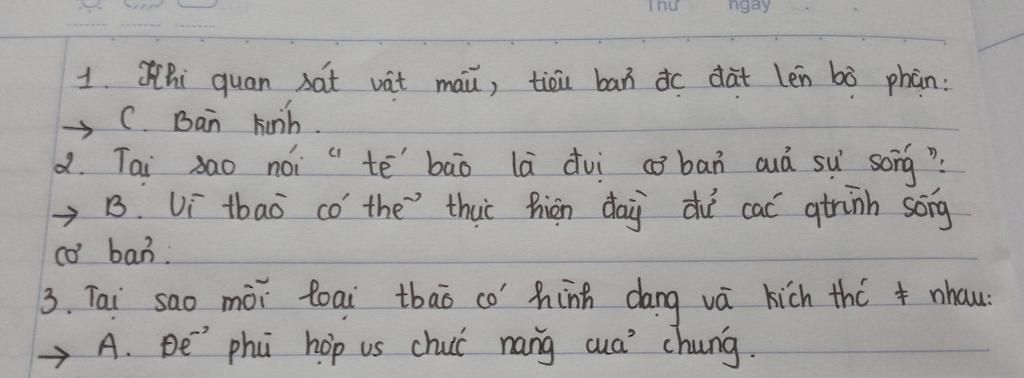 Thứ ngày
1. Khi quan sát vật mẫu, tiêu bản đc đặt lên bộ phận:
→ C. Bàn kính.
2. Tại sao nói “tế bào là đvị cơ bản của sự sống”:
→ B. Vì tbào có thể thực hiện đầy đủ các qtrình sống
cơ bản.
3. Tại sao mỗi loại tbào có hình dạng và kích thć ≠ nhau:
→ A. Để phù hợp vs chức năng của chúng.